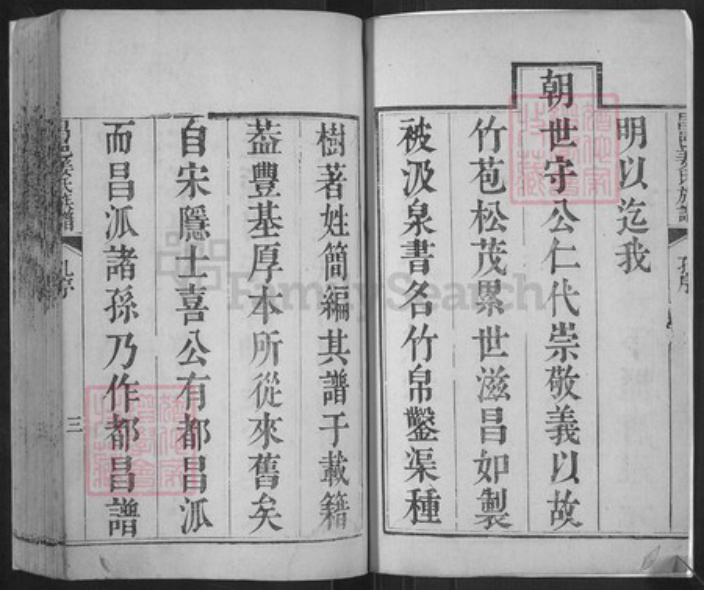 明以迄我
朝世守公仁代崇敬義以故
竹苞松茂累世滋昌如製
被汲泉書名竹帛鑿渠種
樹著姓簡編其譜于載籍
葢豐基厚本所從來舊矣
自宋隱士喜公有都昌派
而昌派諸孫乃作都昌譜
孔序
三
FamilySearch